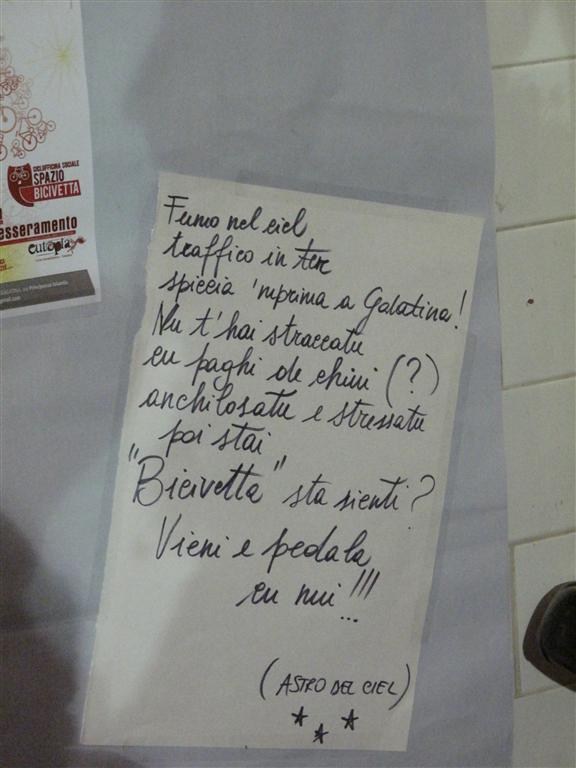 CICLOFFICINA SOCIALE
SPAZIO
BICIVETTA
esseramento
eutopia
Fumo nel ciel
traffico in ter
spiccia 'mprima a Galatina!
Nu t'hai straccatu
cu paghi de chiui (?)
anchilosatu e stressatu
poi stai
"Bicivetta" sta sienti?
Vieni e pedala
cu nui...!!!
(ASTRO DEL CIEL)